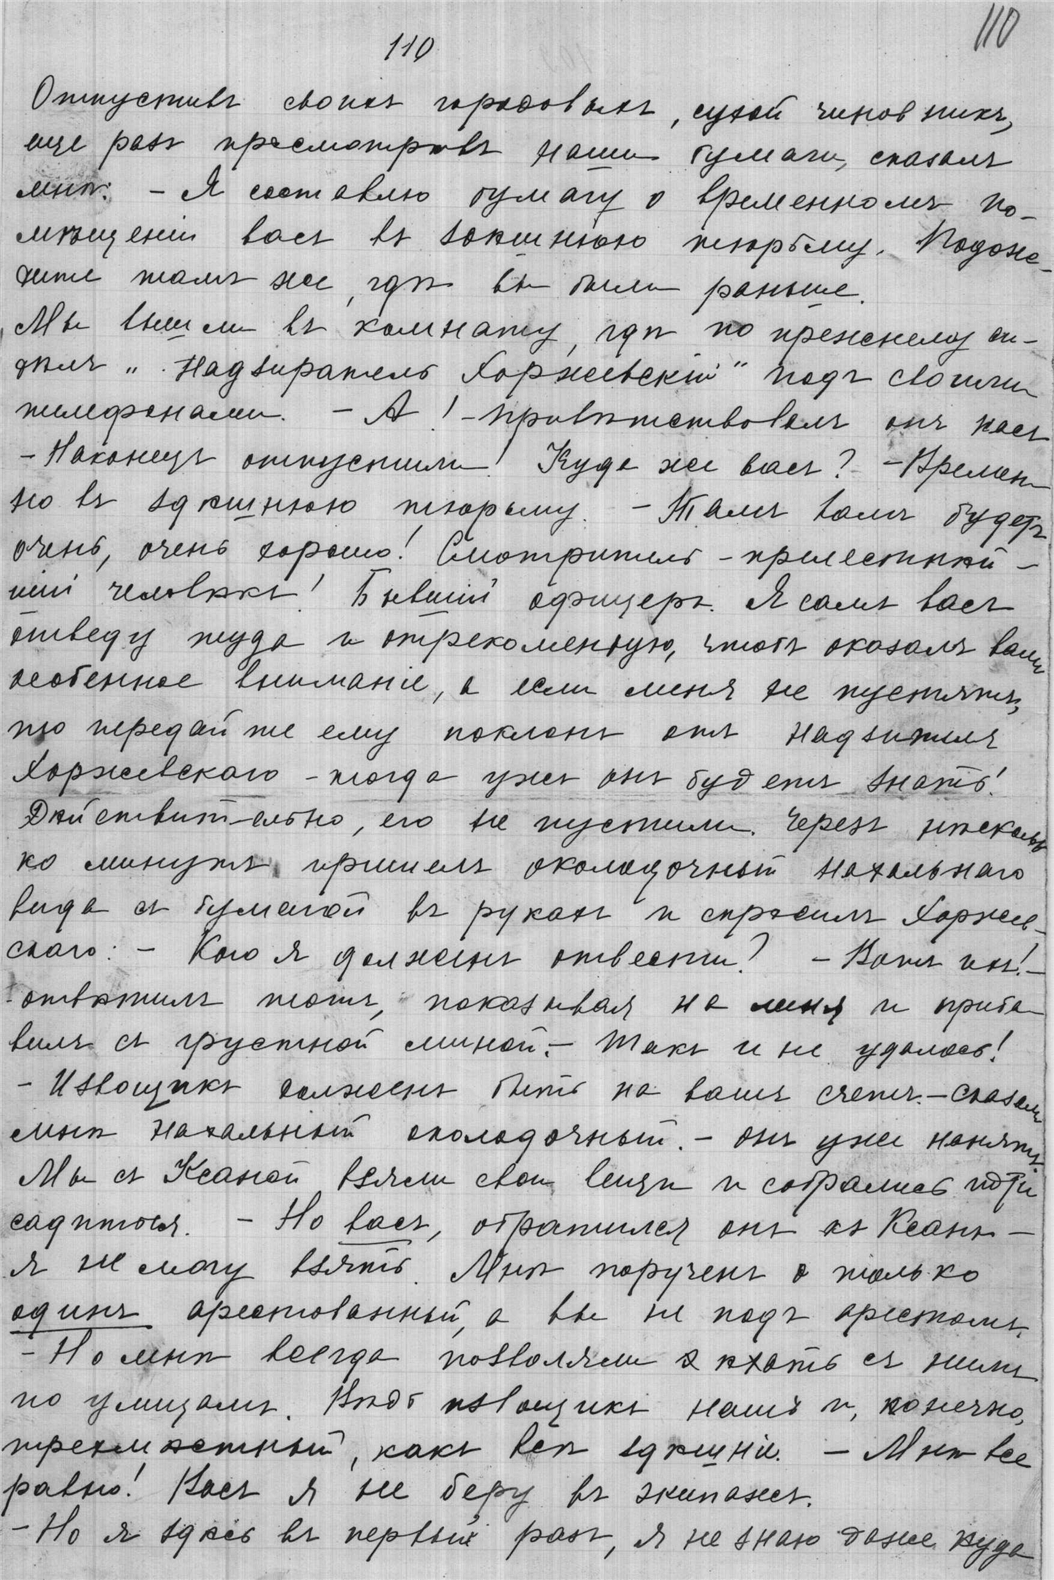 110
110
Отпустивъ своихъ городовыхъ, сухой чиновникъ,
еще разъ просмотрѣвъ наши бумаги, сказалъ
мнѣ: – Я составлю бумагу о временномъ по-
мѣщеніи васъ въ здѣшнюю тюрьму. Подож-
дите тамъ же, гдѣ вы были раньше.
Мы вышли въ комнату, гдѣ по прежнему си-
дѣлъ „Надзиратель Хоржевскій" подъ своими
телефонами. – А! – привѣтствовалъ онъ насъ
– Наконецъ отпустили! Куда же васъ? – Времен-
но въ здѣшнюю тюрьму. – Тамъ вамъ будетъ
очень, очень хорошо! Смотритель – прелестнѣй-
шій человѣкъ! Бывшій офицеръ. Я самъ васъ
отведу туда и отрекомендую, чтобъ оказалъ вамъ
особенное вниманіе, а если меня не пустятъ,
то передайте ему поклонъ отъ надзителя
Хоржевскаго – тогда ужъ онъ будетъ знать!
Дѣйствительно, его не пустили. Черезъ нѣсколь
ко минутъ пришелъ околодочный нахальнаго
вида съ бумагой въ рукахъ и спросилъ Хоржев-
скаго: – Кого я долженъ отвести? – Вотъ ихъ! –
отвѣтилъ тотъ, показывая на меня и приба-
вилъ съ грустной миной: – Такъ и не удалось!
– Извощикъ долженъ быть на вашъ счетъ. – сказалъ
мнѣ нахальный околодочный. – онъ уже нанятъ.
Мы съ Ксаной взяли свои вещи и собрались идти
садиться. – Но васъ, обратился онъ къ Ксанѣ –
я не могу взять. Мнѣ порученъ только
одинъ арестованный, а вы не подъ арестомъ.
– Но мнѣ всегда позволяли ѣхать съ ними
по улицамъ. Вѣдь извощикъ нашъ и, конечно,
трехмѣстный, какъ всѣ здѣшніе. – Мнѣ все
равно! Васъ я не беру въ экипажъ.
– Но я здѣсь въ первый разъ, я не знаю даже куда